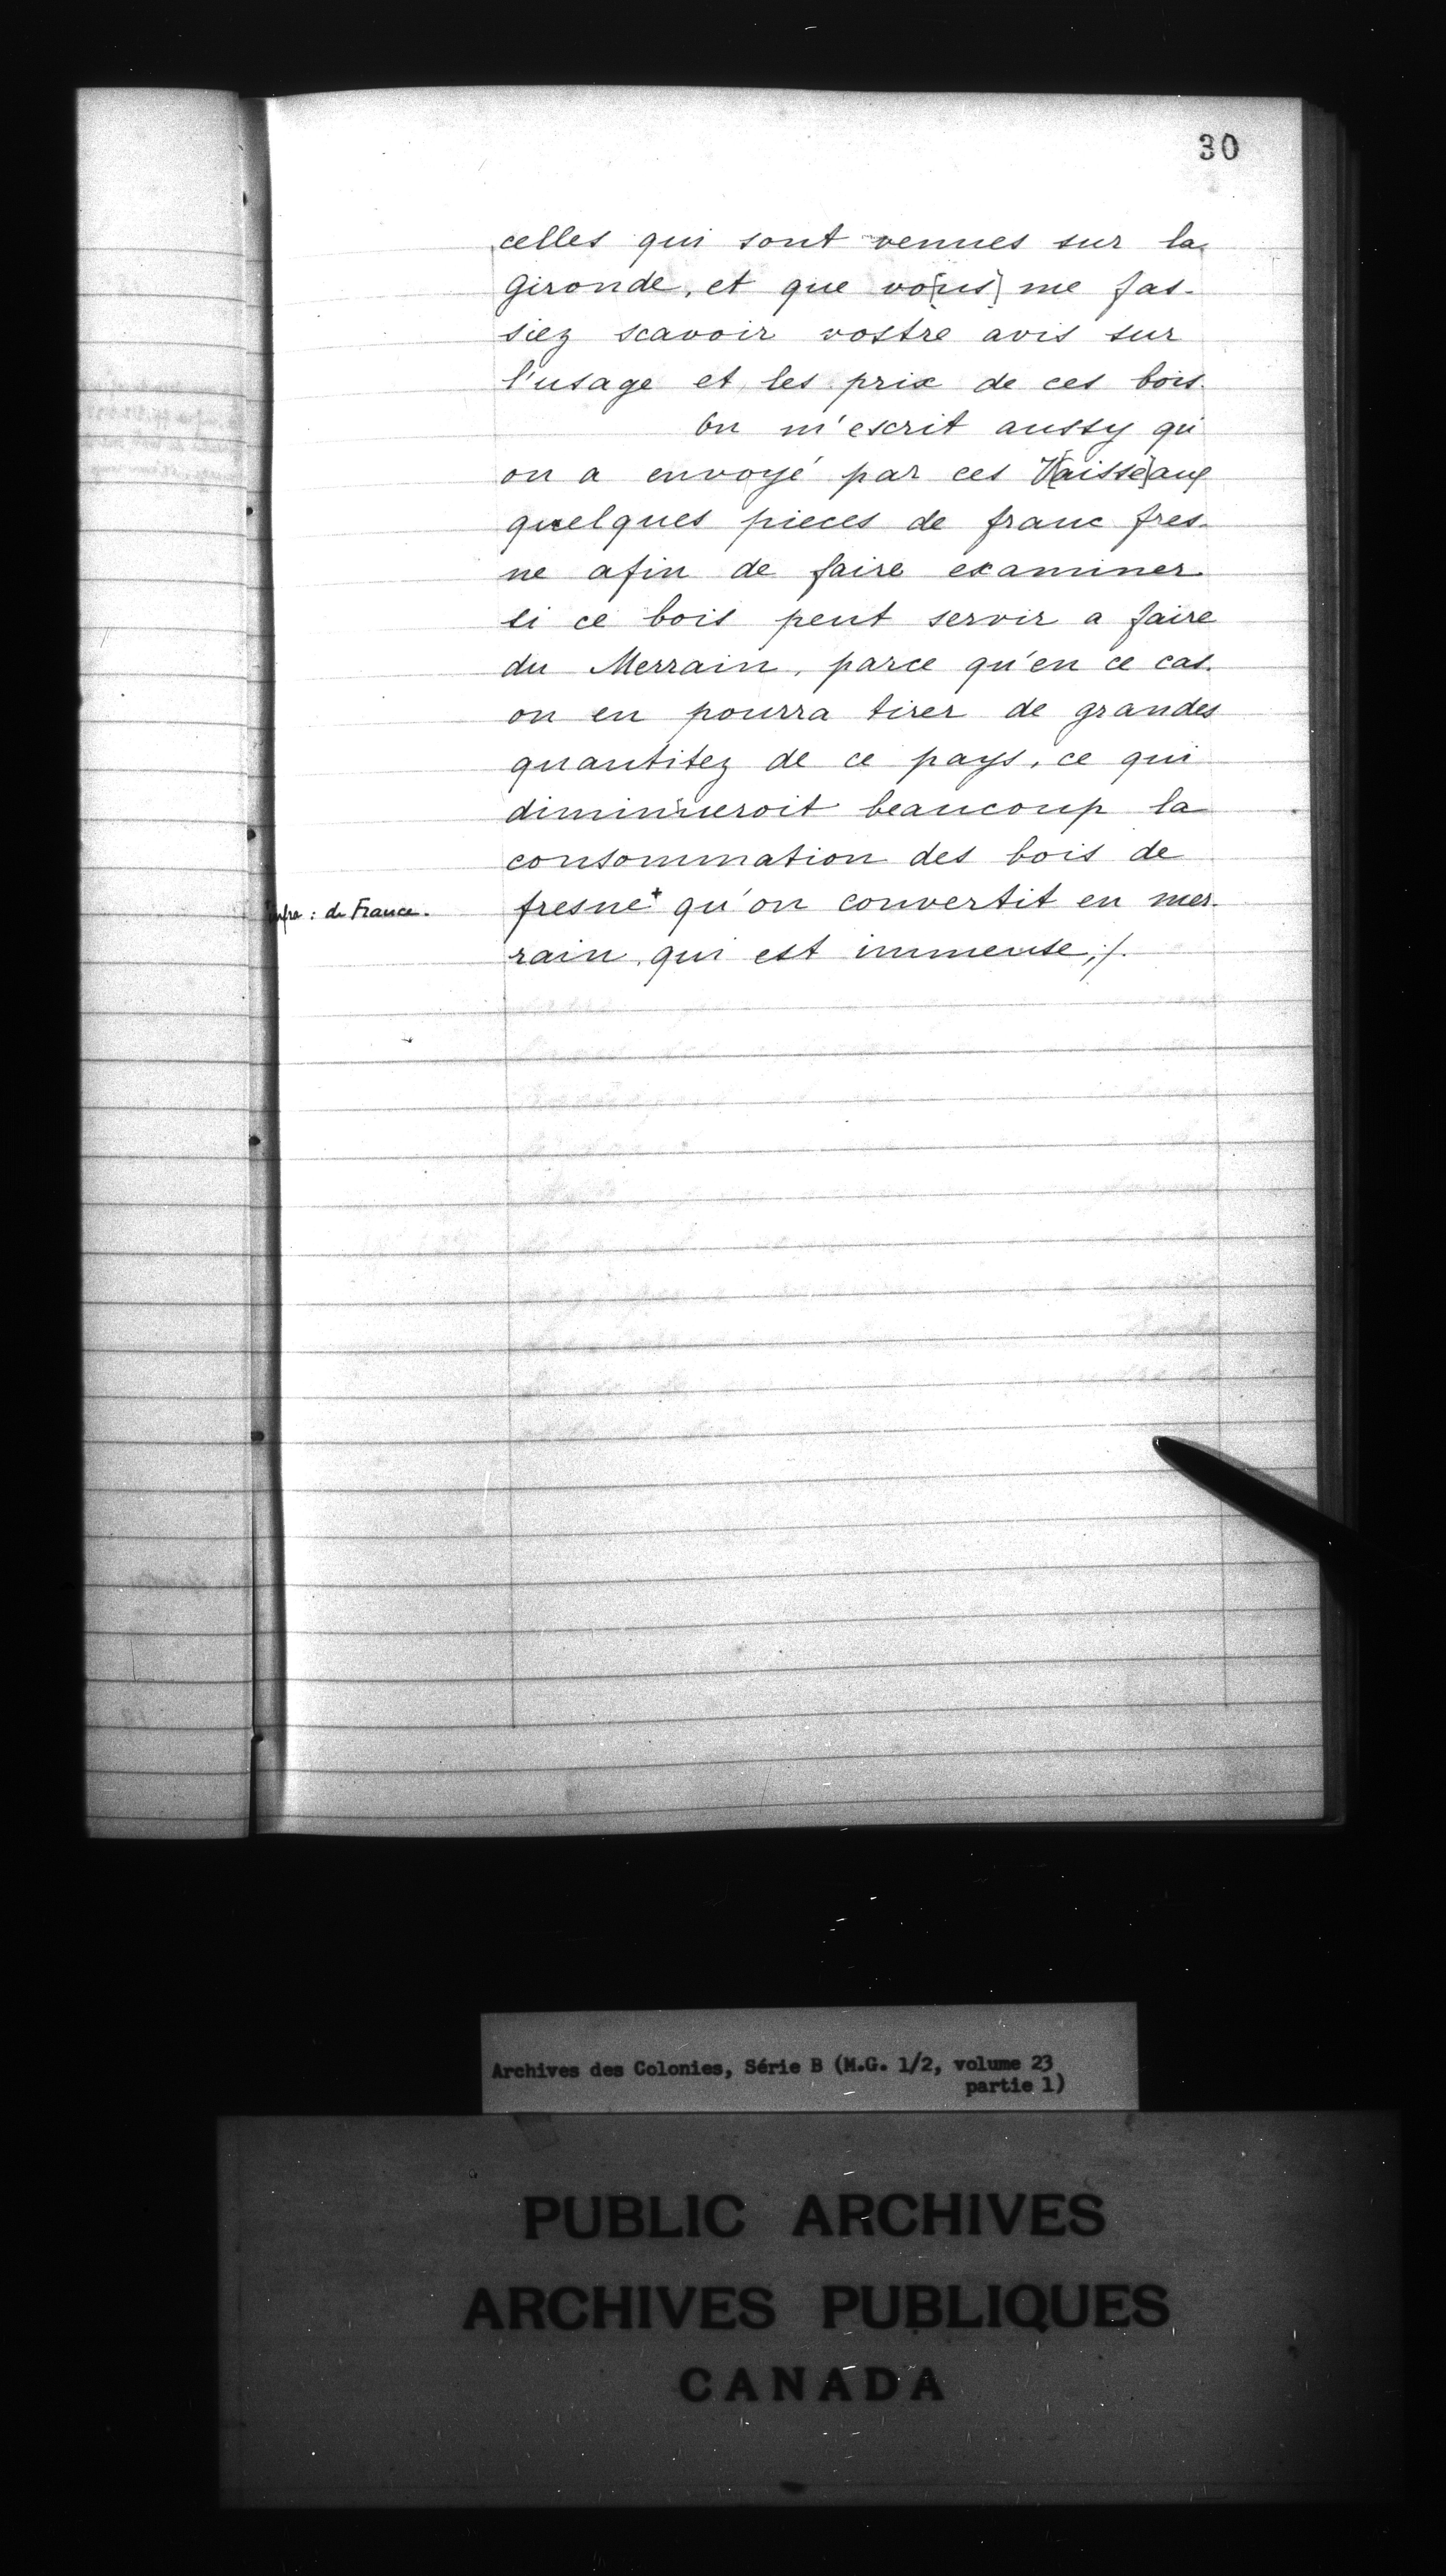 30
celles qui sont venues sur la
Gironde, et que vo[us] me fas-
siez scavoir vostre avis sur
l'usage et les prix de ces bois.
On m'escrit aussy qu'
on a envoyé par ces V[aisse]aux
quelques pieces de franc fres-
ne afin de faire examiner
si ce bois peut servir a faire
du Merrain, parce qu'en ce cas
on en pourra tirer de grandes
quantitez de ce pays, ce qui
diminüeroit beaucoup la
consommation des bois de
fresne+ qu'on convertit en mer-
rain qui est immense,/.
: de France.
Archives des Colonies, Série B (M.G. 1/2, volume 23
partie 1)
PUBLIC ARCHIVES
ARCHIVES PUBLIQUES
CANADA